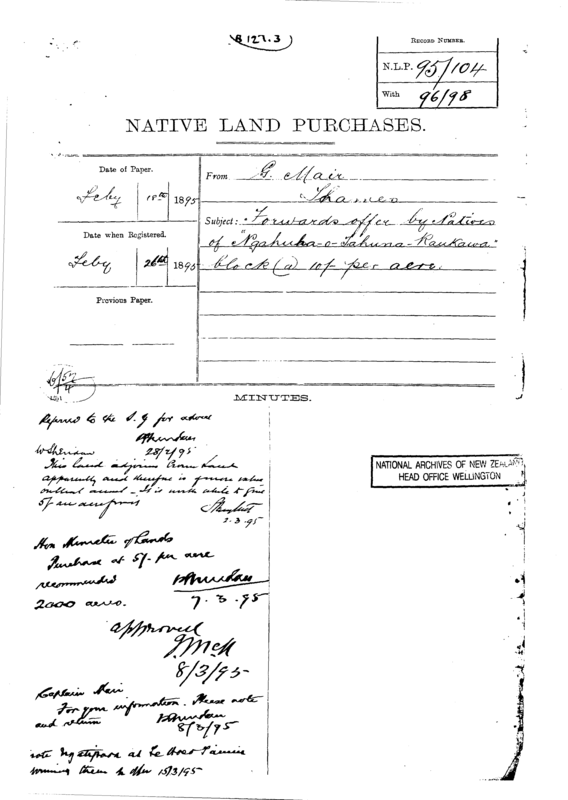 B 127.3
RECORD NUMBER.
N.L.P. 95/104
With 96/98
NATIVE LAND PURCHASES.
Date of Paper.
Feby 18th 1895
Date when Registered.
Feby 26th 1895
Previous Paper.
From G. Mair
Thames
Subject: Forwards offer by Natives
of "Ngahuha-o-Tahuna-Raukawa"
block @ 10/- per acre.
MINUTES.
Referred to the S. G for advice
P Sheridan
28/2/95
Mr Sheridan
This land adjoins Crown Land
apparently and therefore is of more value
- It is worth while to give
5/- an acre for it
2.3.95
Hon Minister of Lands
Purchase at 5/- per acre
recommended
P Sheridan
2000 acres.
7.3.95
approved
J. McK
8/3/95
Captain Mair
For your information. Please note
and return
P Sheridan
8/3/95
note
them to offer 15/3/95
NATIONAL ARCHIVES OF NEW ZEALAND
HEAD OFFICE WELLINGTON